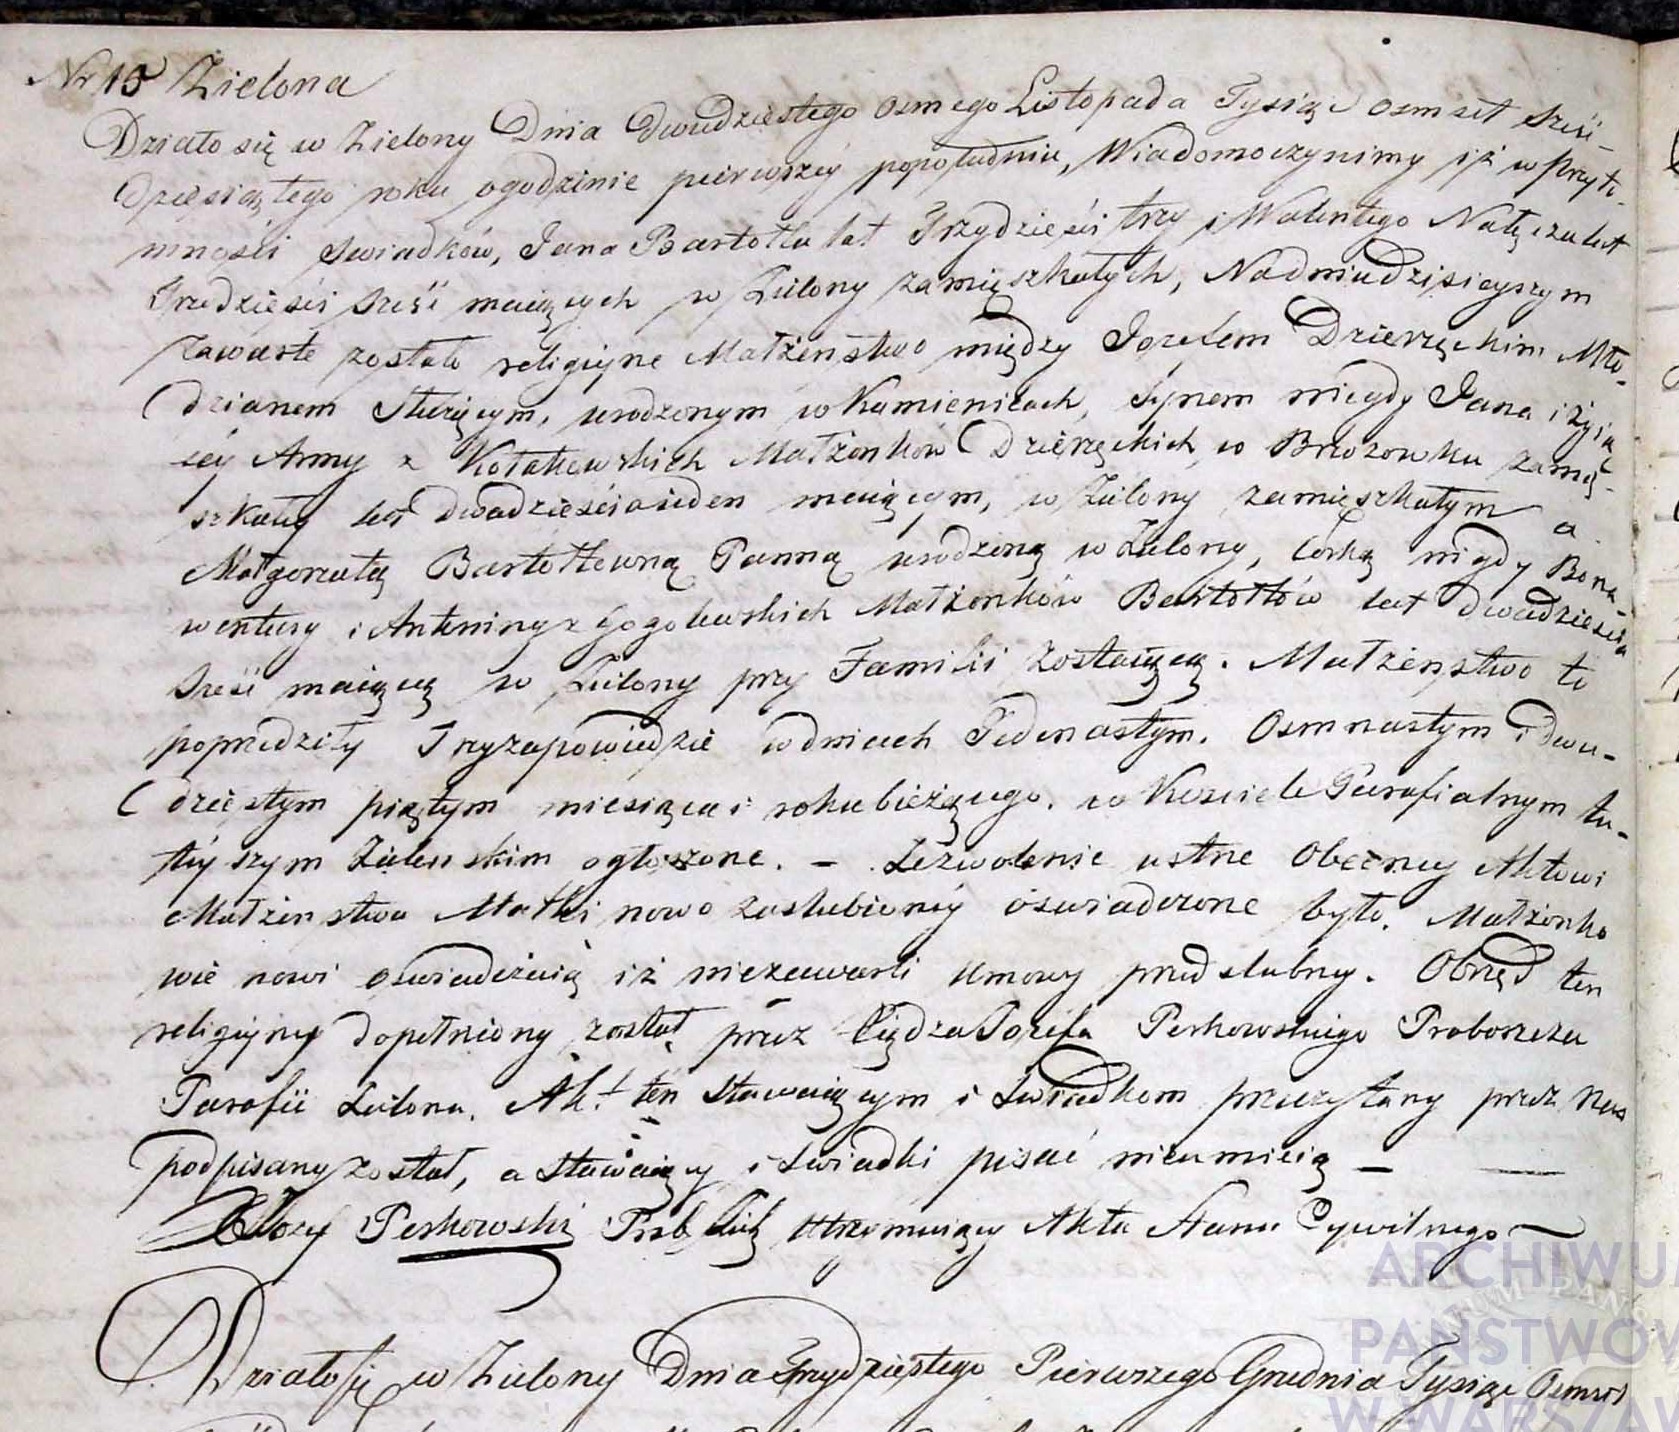 Nr 15 Zielona
Działo się w Zielony Dnia Dwudziestego Osmego Listopada Tysiąc Osmset Sześć-
Dziesiątego roku ogodzinie pierwszey popołudniu, Wiadomoczynimy iż w Przyto-
mności Swiadków, Jana Bartołta lat Trzydzieści trzy i Walentego Nałęcza lat
Trzedzieści Sześć maiących w Zielony zamięszkałych, Nadniudzisieyszym
zawarte zostało religijne Małżeństwo między Jozefem Dzierzęckim Mło-
dzianem Służącym, urodzonym w Kamienicach, Synem niegdy Jana i żyią-
cey Anny z Kołakowskich Małżonków Dzierzęckich, w Brzozowku zamię-
szkały lat dwadzieścia siedem maiącym, w Zielony zamięszkałym a
Małgorzatą Bartołtowną Panną urodzoną w Zielony, Corką niegdy Bona-
wentury i Antoniny z Gogolewskich Małżonków Bartołtów lat dwadzieścia
Sześć maiącą w Zielony przy Familii zostaiącą. Małżeństwo to
poprzedziły Trzy zapowiedzie w dniach Jedenastym. Osmnastym i dwu-
dziestym piątym miesiąca i roku bieżącego. w Kosciele Parafialnym tu-
teyszym Zielenskim ogłoszone. – Zezwolenie ustne Obecney Aktowi
Małżeństwa Matki nowo zaslubioney oświadczone było. Małżonko
wie nowi oswiadczaią iż niezawarli Umowy przedslubny. Obrzęd ten
religijny dopełniony został przez Xiędza Jozefa Perkowskiego Proboszcza
Parafii Zielona. Akt ten Stawaiącym i Swiadkom przeczytany przez Nas
podpisany został, a Stawaiący i Swiadki pisać nieumieią –
X Jozef Perkowski Prob. Utrzymuiący Akta Stanu Cywilnego
Działo się w Zielony Dnia Trzydziestego Pierwszego Grudnia Tysiąc Osmset
ARCHIWUM
PAŃSTWOW
W WARSZAW